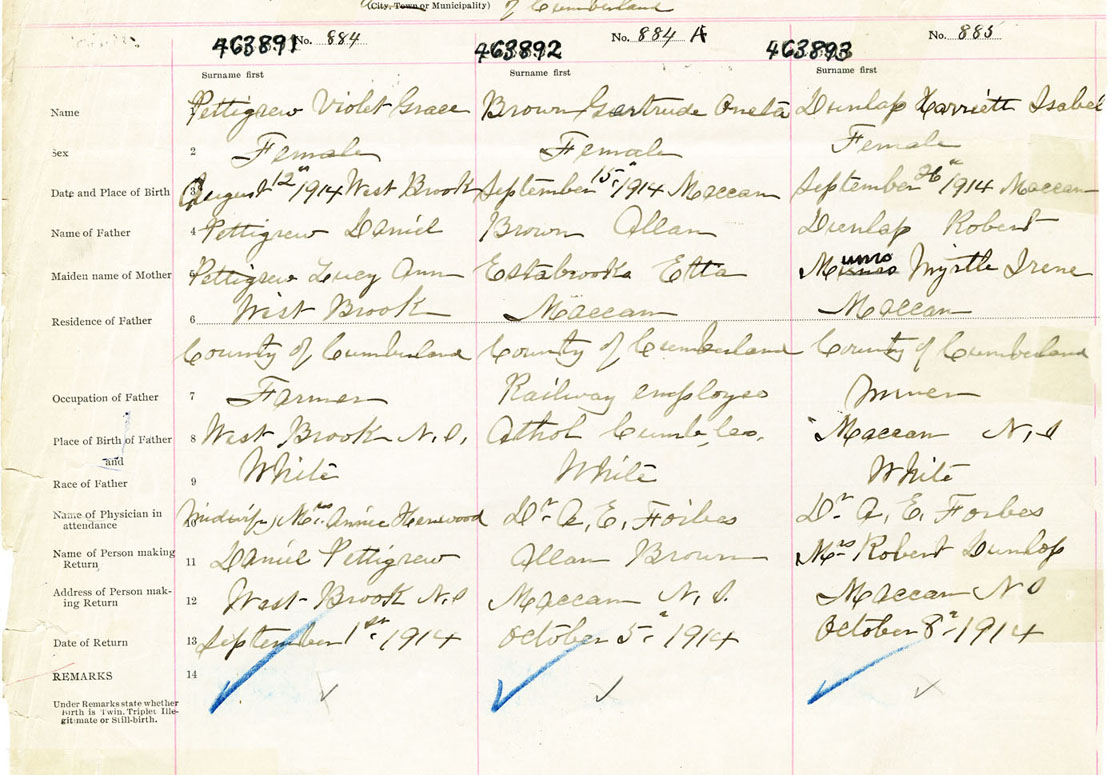 (City, Town or Municipality) of Cumberland
463891 No. 884 463892 No. 884 A 463893 No. 885
Surname first Surname first Surname first
Name Pettigrew Violet Grace Brown Gertrude Oneta Dunlap Harriett Isabel
Sex 2 Female Female Female
Date and Place of Birth 3 August 12th 1914 West Brook September 15th 1914 Maccan September 26th 1914 Maccan
Name of Father 4 Pettigrew Daniel Brown Allan Dunlap Robert
Maiden name of Mother 5 Pettigrew Lucy Ann Estabrooks Etta Munro Myrtle Irene
Residence of Father 6 West Brook Maccan Maccan
County of Cumberland County of Cumberland County of Cumberland
Occupation of Father 7 Farmer Railway employee Miner
Place of Birth of Father 8 West Brook N.S. Athol Cumb. Co. Maccan N.S
and
Race of Father 9 White White White
Name of Physician in attendance 10 Midwife, Mrs. Annie Henwood Dr. A. E. Forbes Dr. A. E. Forbes
Name of Person making Return 11 Daniel Pettigrew Allan Brown Mrs Robert Dunlop
Address of Person making Return 12 West-Brook N.S Maccan N.S. Maccan N S
Date of Return 13 September 1st. 1914 October 5th 1914 October 8th 1914
REMARKS 14
Under Remarks state whether
Birth is Twin, Triplet Ille-
gitimate or Still-birth.